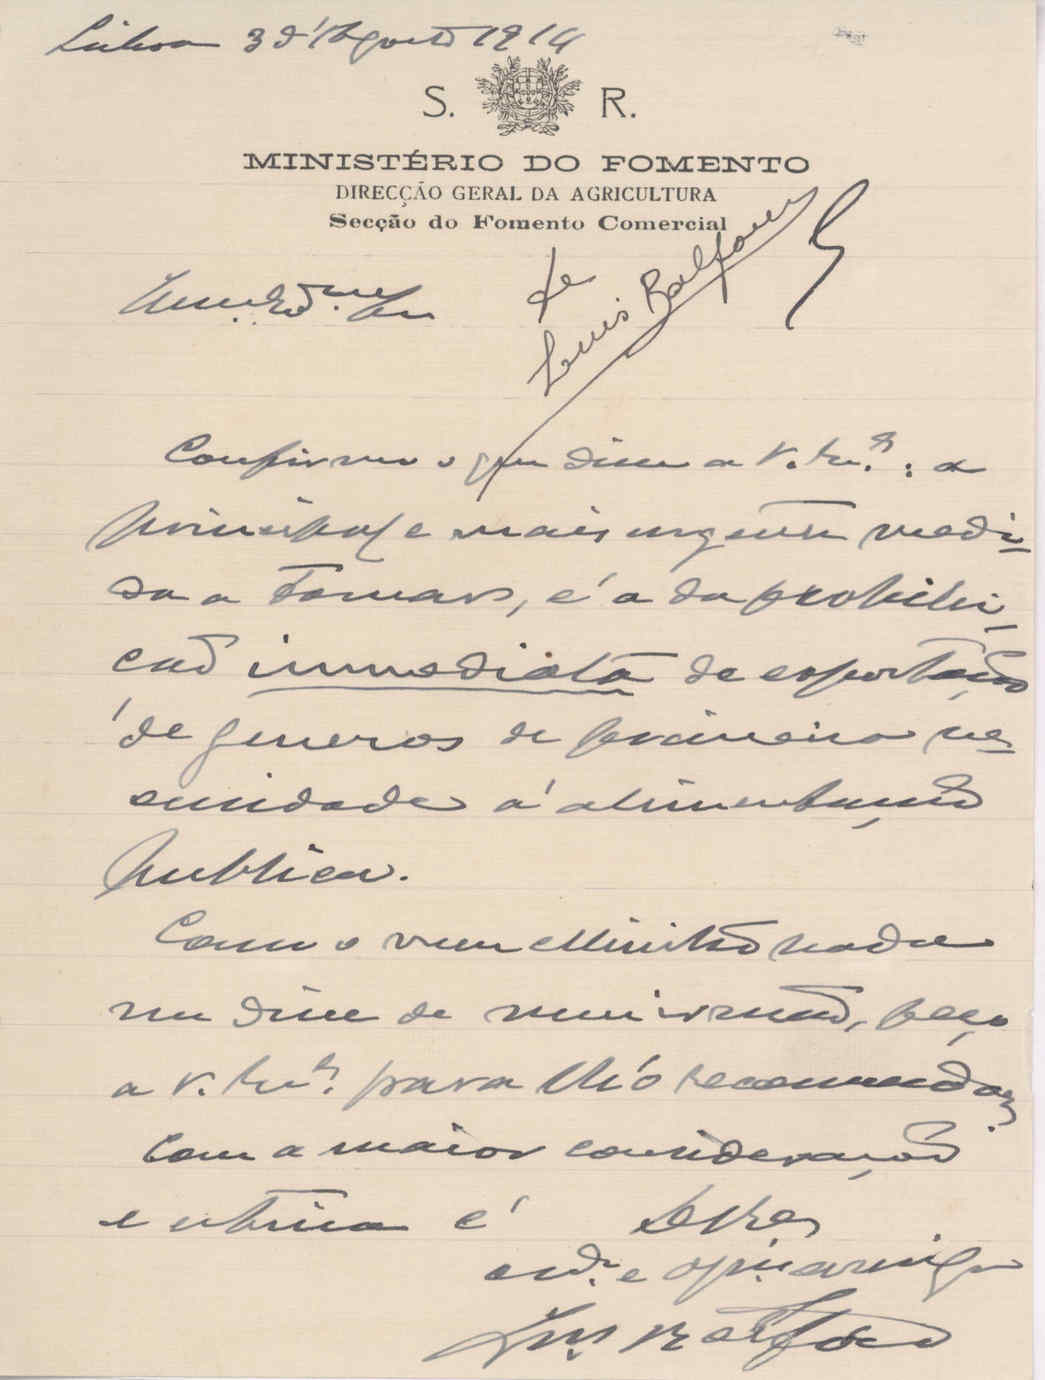 Lisboa 3 d'Agosto 1914
S. R.
MINISTÉRIO DO FOMENTO
DIRECÇÃO GERAL DA AGRICULTURA
Secção do Fomento Comercial
de
Luis Balfour
Illmo. Exmo. Snr
Confirmo o que disse a V. Exa.: a
principal e mais urgente medi-
da a tomar, é a da prohibi-
ção immediata de exportação
de generos de primeira ne-
cessidade á alimentação
publica.
Como o meu Ministro nada
me disse de , peço
a V. Exa. para lh'o recommendar.
Com a maior consideração
e estima é De V. Exa
e amigo